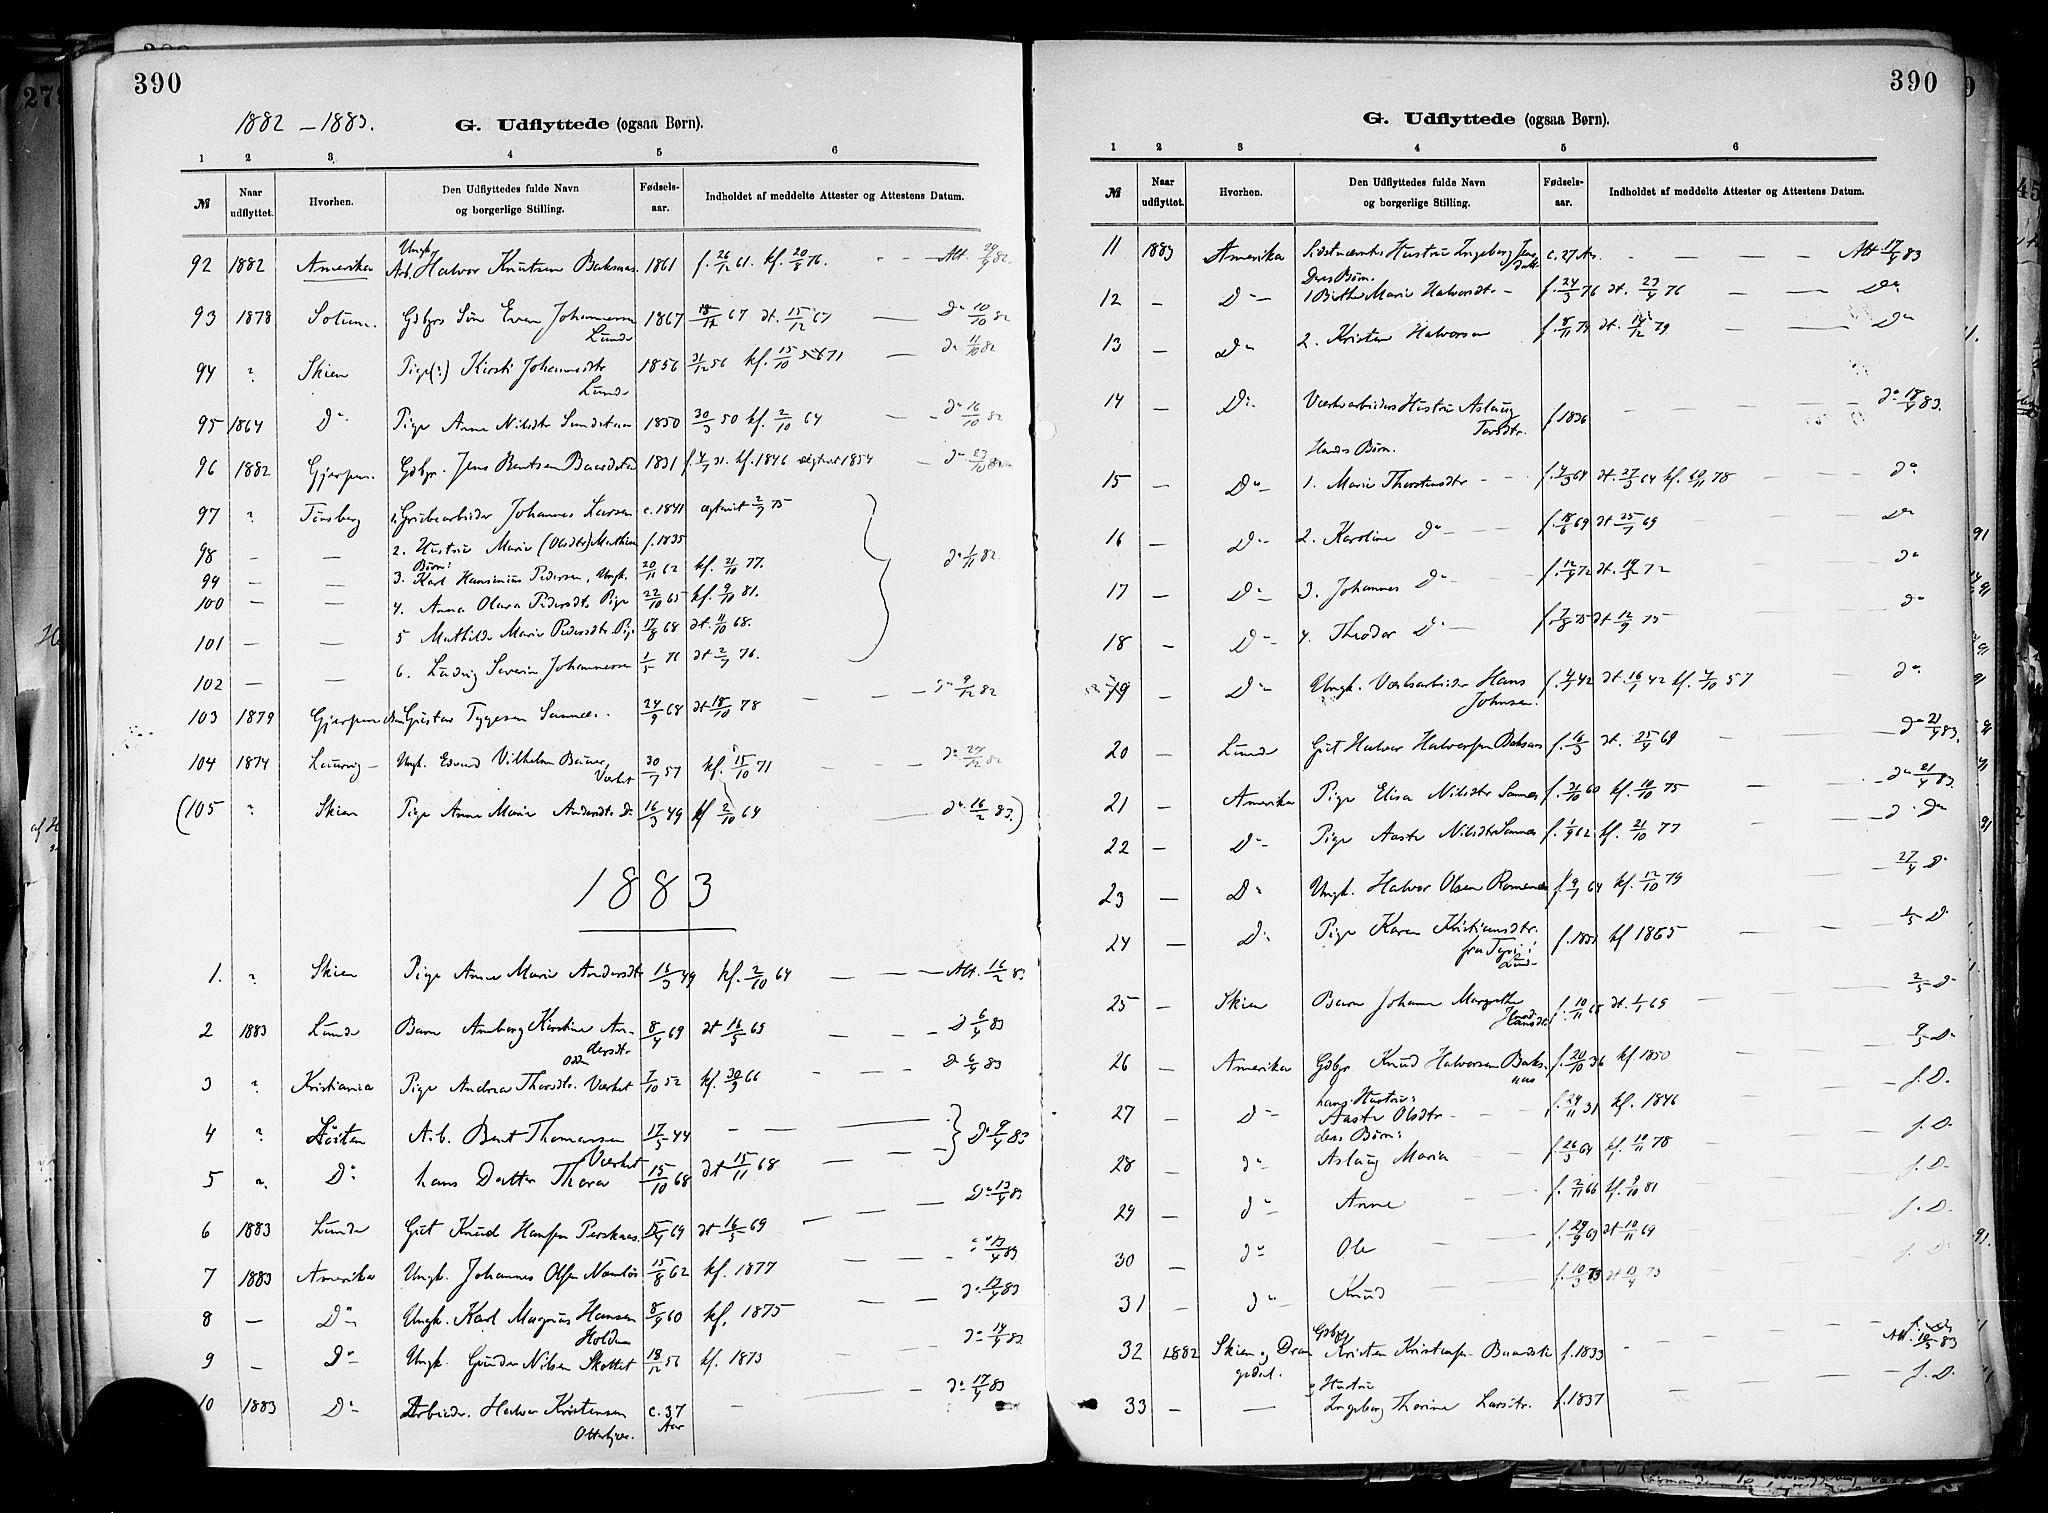 390
1882 – 1883.
G. Udflyttede (ogsaa Børn).
1 2 3 4 5 6
№ Naar udflyttet. Hvorhen. Den Udflyttedes fulde Navn og borgerlige Stilling. Fødsels-aar. Indholdet af meddelte Attester og Attestens Datum.
92 1882 Amerika Ungk. Arb. Halvor Knutsen Baksaas 1861 f. 26/12 61. kf. 20/8 76. Att. 29/9 82
93 1878 Gdbrs Søn Even Johannesen Lunde 1867 18/12 67 dt. 15/12 67 do 10/10 82
94 ? Skien Pige(?) Kirsti Johannesdtr Lunde 1856 21/12 56 kf. 15/10 71 do 11/10 82
95 1864 Do Pige Anne Nilsdtr 1850 30/3 50 kf. 2/10 64 do 16/10 82
96 1882 Gjerpen. Gdbr. Jens Bentsen Baardstu 1831 kf. 1846 ægtviet 1854 do 23/10 82
97 ? Tønsberg 1. Grubearbeider Johannes Larsen c. 1841 ægteviet 2/7 75
98 — — 2. Hustru Marie (Olsdtr) f. 1835
99 — — Børn: 3. Karl Hansinius Pedersen, Ungk. 20/11 62 kf. 21/10 77. do 1/11 82
100 — — 4. Anna Olava Pedersdtr. Pige 22/10 65 kf. 9/10 81.
101 — — 5 Mathilde Marie Pedersdtr. Pi. 17/8 68 dt. 11/10 68.
102 — — 6. Ludvig Severin Johannesen 1/5 76 dt 2/7 76.
103 1879 Gjerpen Gustav Tygesen Sannes. 24/9 68 dt 18/10 78 do 9/12 82
104 1874 Laurvig Ungk. Edvard Vilhelm Bauer, Værket 30/7 57 kf. 15/10 71 do 27/12 82
(105 ? Skien Pige Anne Marie Andersdtr. Do 16/3 49 kf 2/10 64 do 16/2 83.)
1883
1. ? Skien Pige Anne Marie Andersdtr 16/3 49 kf. 2/10 64 Att. 16/2 83
2 1883 Lunde Barn Amborg Kirstine Andersdtr 8/4 69 dt 16/5 69 D 6/4 83
3 ? Kristiania Pige Andrea Thorsdtr. Værket 7/10 52 kf. 30/9 66 D 6/4 83
4 ? Løiten Arb. Bent Thomassen Værket 17/5 44 Do 9/4 83
5 ? Do hans Datter Thora 15/10 68 dt 15/11 68
6 1883 Lunde Gut Knud Hansen Perskaas 15/4 69 dt 16/5 69 Do 13/4 83
7 1883 Amerika Ungk. Johannes Olsen Namløs 15/8 62 kf. 1877 13/4 83
8 — Do Ungk. Karl Magnus Hansen Holden 8/9 60 kf. 1875 do 13/4 83
9 — Do Ungk. Gunder Nilsen Skottet 18/12 56 kf. 1873 do 14/4 83
10 1883 Do Arbeider. Halvor Kristensen Otterkjær. c. 37 Aar do 17/4 83
390
G. Udflyttede (ogsaa Børn).
1 2 3 4 5 6
№ Naar udflyttet. Hvorhen. Den Udflyttedes fulde Navn og borgerlige Stilling. Fødsels-aar. Indholdet af meddelte Attester og Attestens Datum.
11 1883 Amerika Sidstnævntes Hustru Ingeborg Jensdatt. c. 27 Ar Att 17/4 83
12 — Do Deres Børn. 1 Birthe Marie Halvorsdtr f. 24/3 76 dt. 23/4 76 Do
13 — Do 2. Kristen Halvorsen f. 8/11 79 dt. 14/12 79 Do
14 — Do Værksarbeiders Hustru Aslaug Torsdtr. f. 1836 do 18/4 83.
15 — Do Hendes Børn. 1. Marie Thorstensdtr f. 4/3 64 dt. 27/3 64 kf. 10/11 78 do
16 — Do 2. Karoline do f. 18/6 69 dt 25/7 69 Do
17 — Do 3. Johannes do f. 12/9 72 dt. 72 do
18 — Do 4. Theodor Do f. 7/8 75 dt 12/9 75 do
19 — Do Ungk. Værksarbeider Hans Johnsen. 42 dt. 16/ 42 kf. 4/10 57 do
20 — Lunde Gut Halvor Halvorsen Baksaas f. 16/3 dt. 25/4 69 do 21/4 83.
21 — Amerika Pige Elise Nilsdtr Sannes f. 31/10 60 kf. 10/10 75 do 21/4 83.
22 — Do Pige Aaste Nilsdtr Sannes f. 1/9 62 kf. 21/10 77 do
23 — Do Ungk. Halvor Olsen f. 9/1 64 kf. 12/10 79 27/4 Do
24 — Do Pige Karen Kristiansdtr. fra f. 1851 kf 1865 1/5 D.
25 — Skien Barn Johanne Margrethe Hansdtr f. 10/11 68 dt. 1/1 69 2/5 Do
26 — Amerika Gdbr Knud Halvorsen Baksaas f. 20/10 36 kf 1850 9/5 Do
27 — Do hans Hustru: Aaste Olsdtr f. 29/11 31 kf. 1846 f. D.
28 — do deres Børn: Aslaug Maria f. 26/3 64 kf. 10/11 78 f. D.
29 — do Anne f. 2/11 66 kf. 9/10 81 f. D.
30 do Ole f. 29/9 69 dt 10/11 69 f. D.
31 — do Knud f. 10/3 73 dt 13/4 73 f. D.
32 1882 Skien og Drangedal. Gdbr Kristen Kristensen Baardstu f. 1833 Att. 19/5 83
33 — — og Hustru Ingeborg Thorine Larsdtr. f. 1837 f. D.